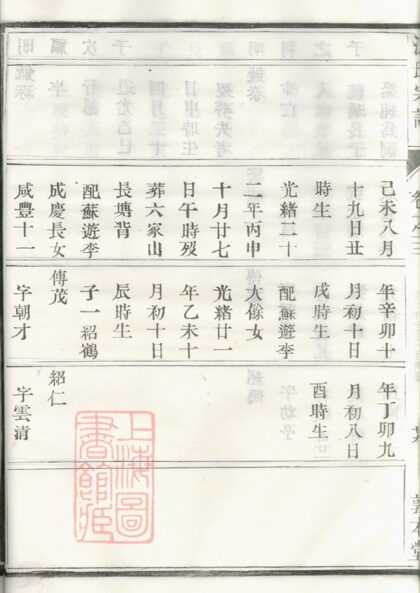 己未八月
十九日丑
時生
光緒二十
二年丙申
十月廿七
日午時殁
葬六家山
長塘背
配蘇遊李
成慶長女
咸豐十一
年辛卯十
月初十日
戌時生
配蘇遊李
大餘女
光緒廿一
年乙未十
月初十日
辰時生
子一紹鶴
傳茂
字朝才
年丁卯九
月初八日
酉時生
紹仁
字雲清
上海圖
書館藏
敦本堂